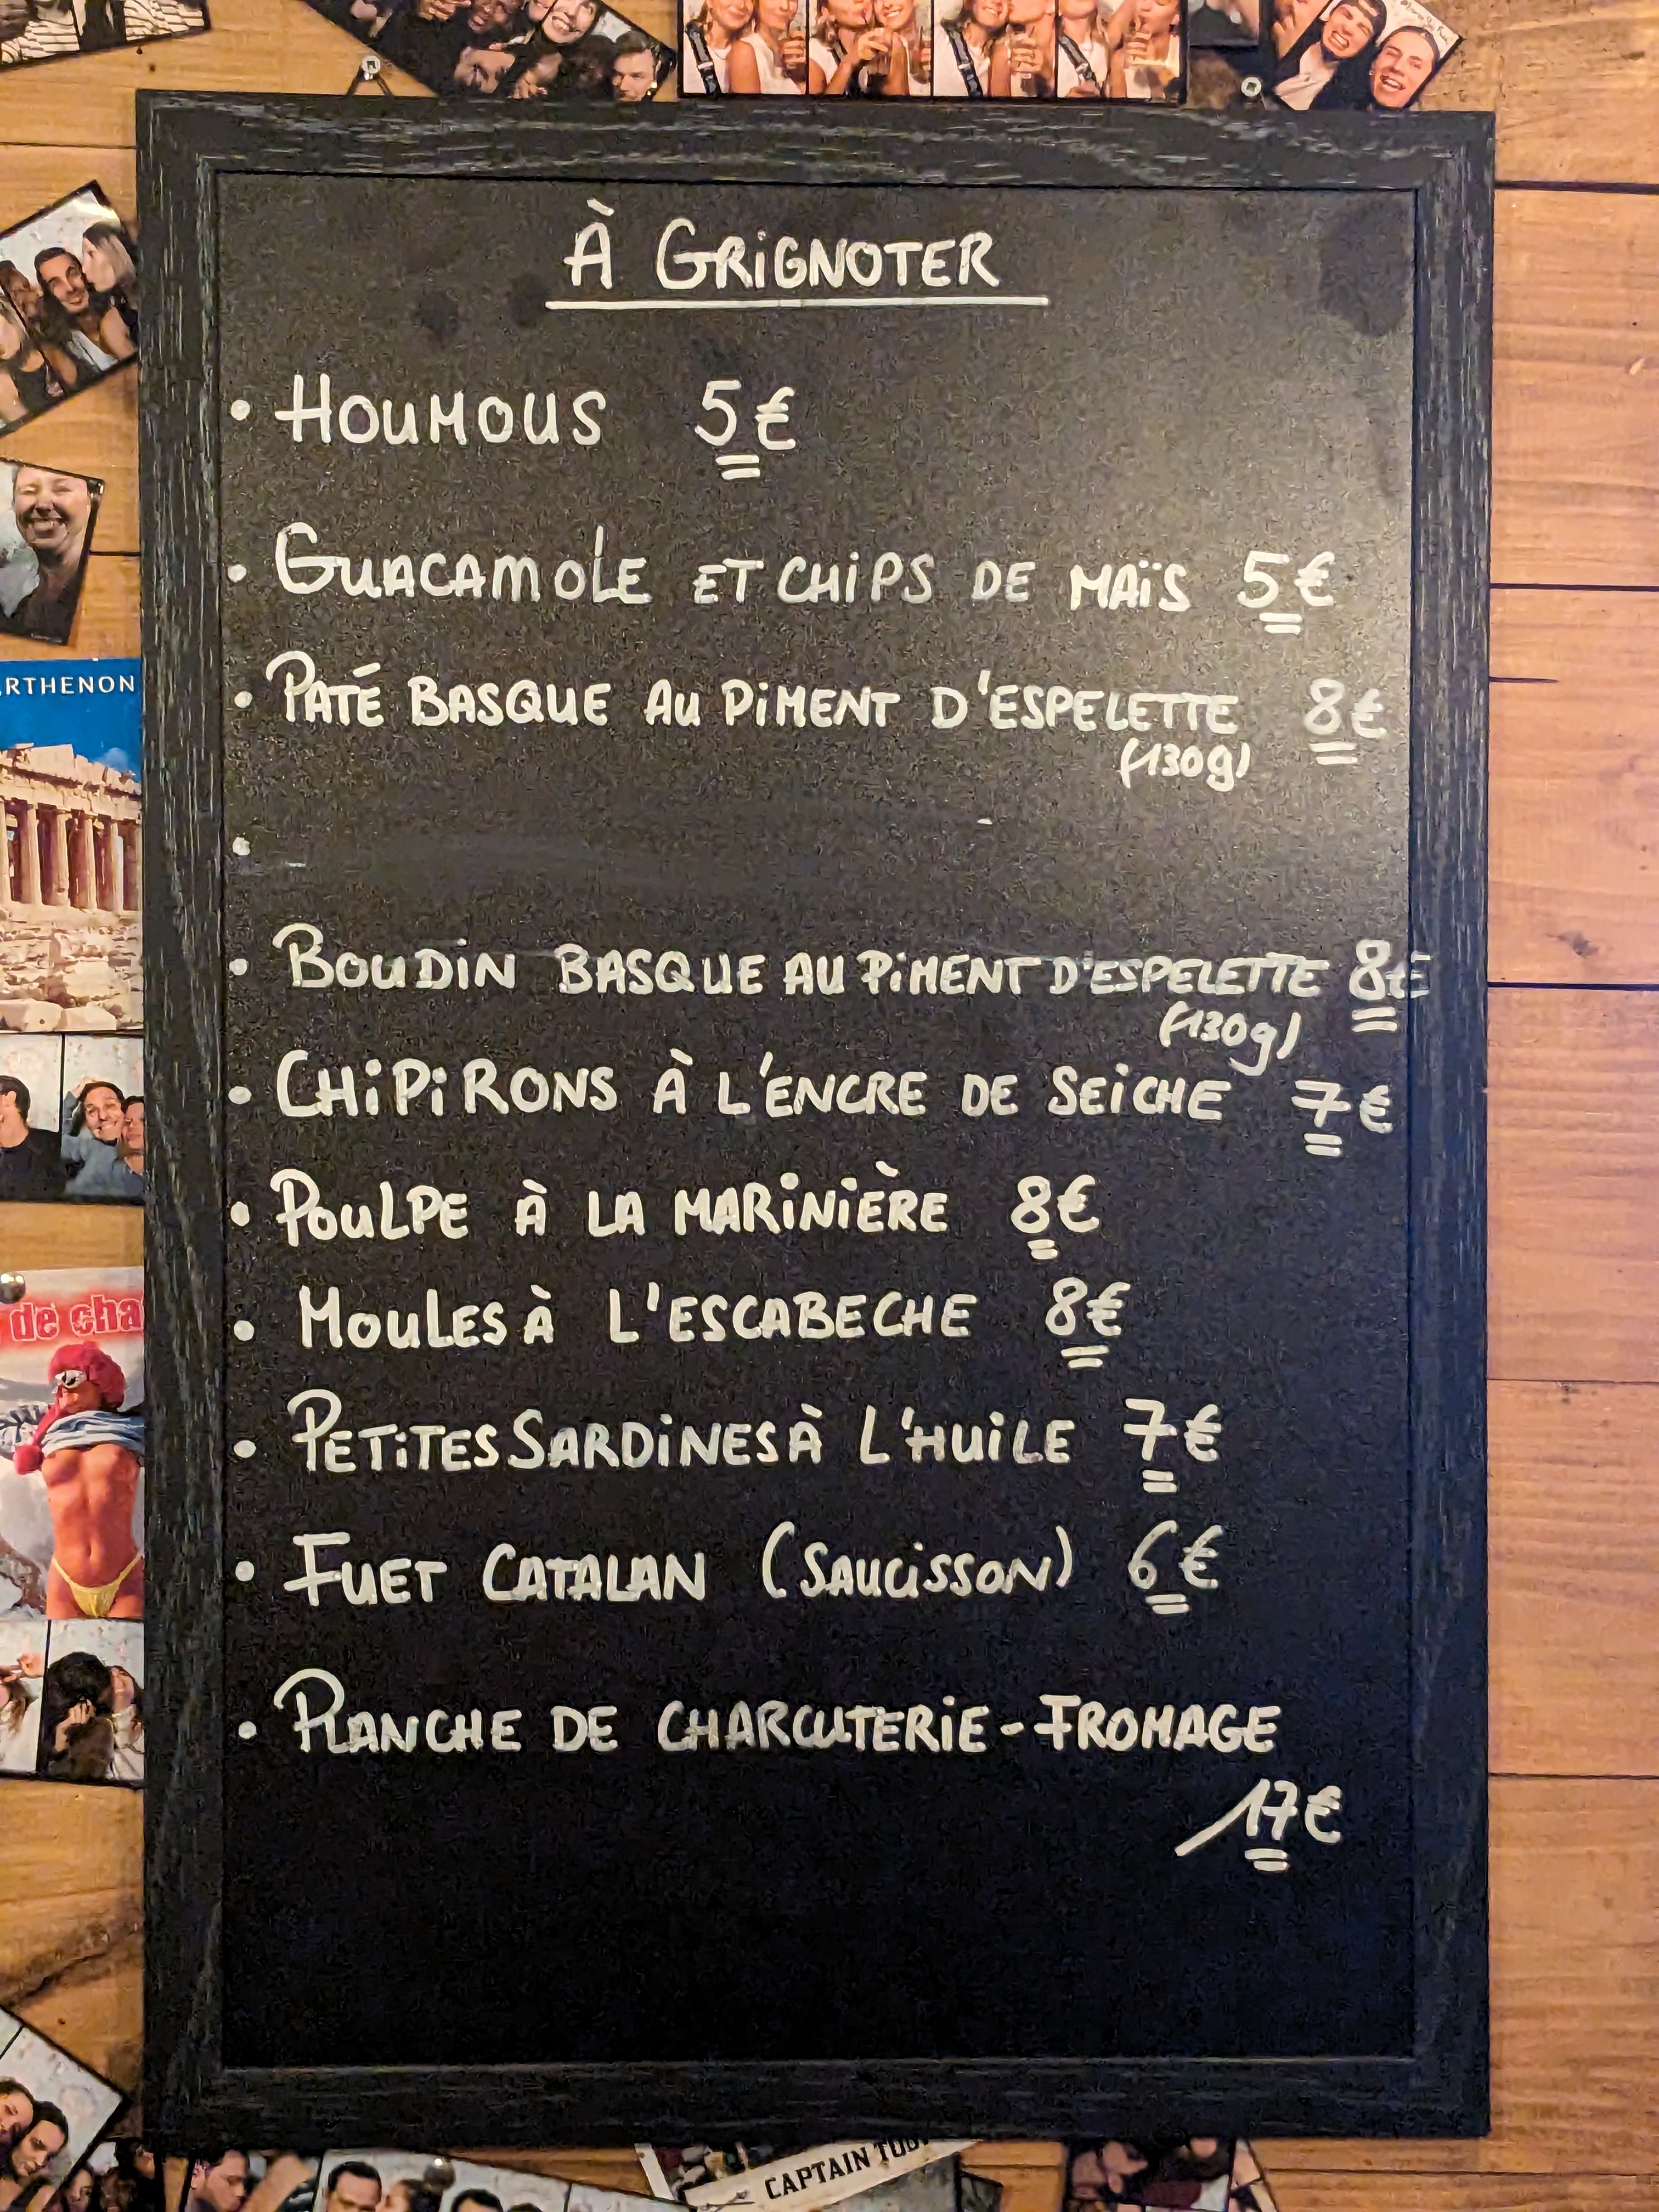 À GRIGNOTER
• HOUMOUS 5€
• GUACAMOLE ET CHIPS DE MAÏS 5€
• PATÉ BASQUE AU PIMENT D'ESPELETTE 8€
(130g)
•
• BOUDIN BASQUE AU PIMENT D'ESPELETTE 8€
(130g)
• CHIPIRONS À L'ENCRE DE SEICHE 7€
• POULPE À LA MARINIÈRE 8€
• MOULES À L'ESCABECHE 8€
• PETITES SARDINES À L'HUILE 7€
• FUET CATALAN (SAUCISSON) 6€
• PLANCHE DE CHARCUTERIE-FROMAGE
17€
RTHENON
de cha
CAPTAIN